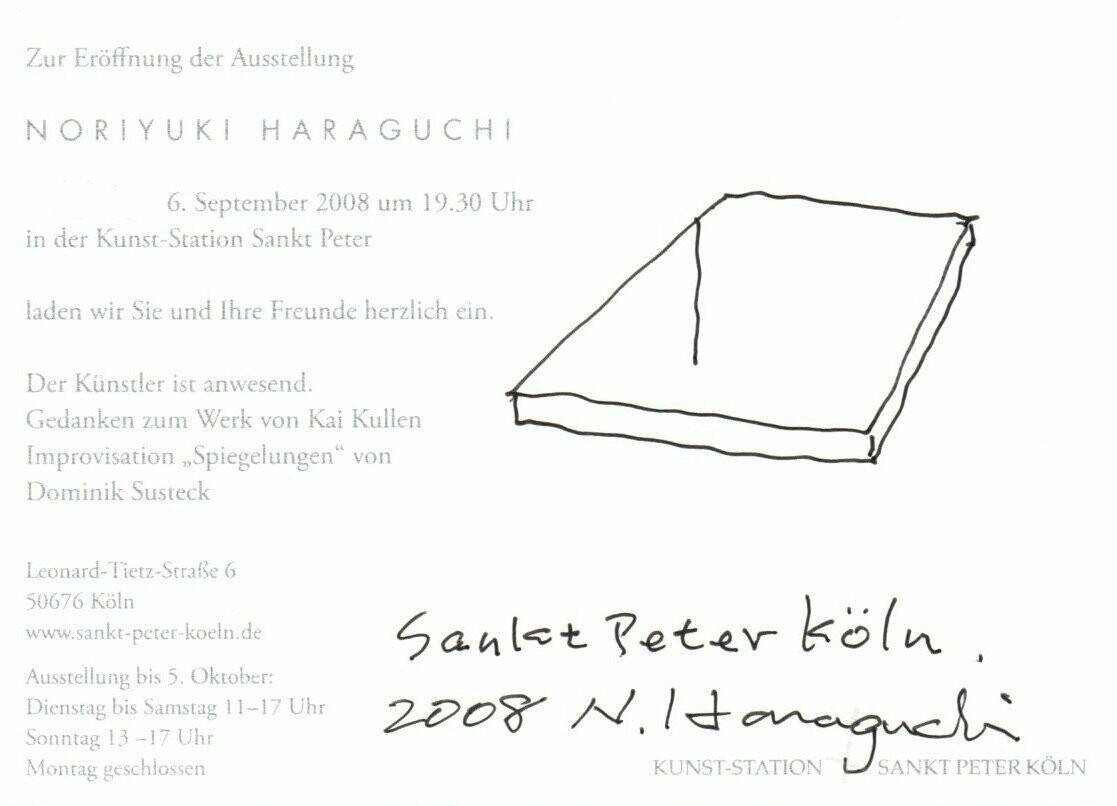 Zur Eröffnung der Ausstellung
NORIYUKI HARAGUCHI
6. September 2008 um 19.30 Uhr
in der Kunst-Station Sankt Peter
laden wir Sie und Ihre Freunde herzlich ein.
Der Künstler ist anwesend.
Gedanken zum Werk von Kai Kullen
Improvisation „Spiegelungen“ von
Dominik Susteck
Leonard-Tietz-Straße 6
50676 Köln
www.sankt-peter-koeln.de
Ausstellung bis 5. Oktober:
Dienstag bis Samstag 11–17 Uhr
Sonntag 13 –17 Uhr
Montag geschlossen
Sankt Peter Köln.
2008 N. Haraguchi
KUNST-STATION SANKT PETER KÖLN